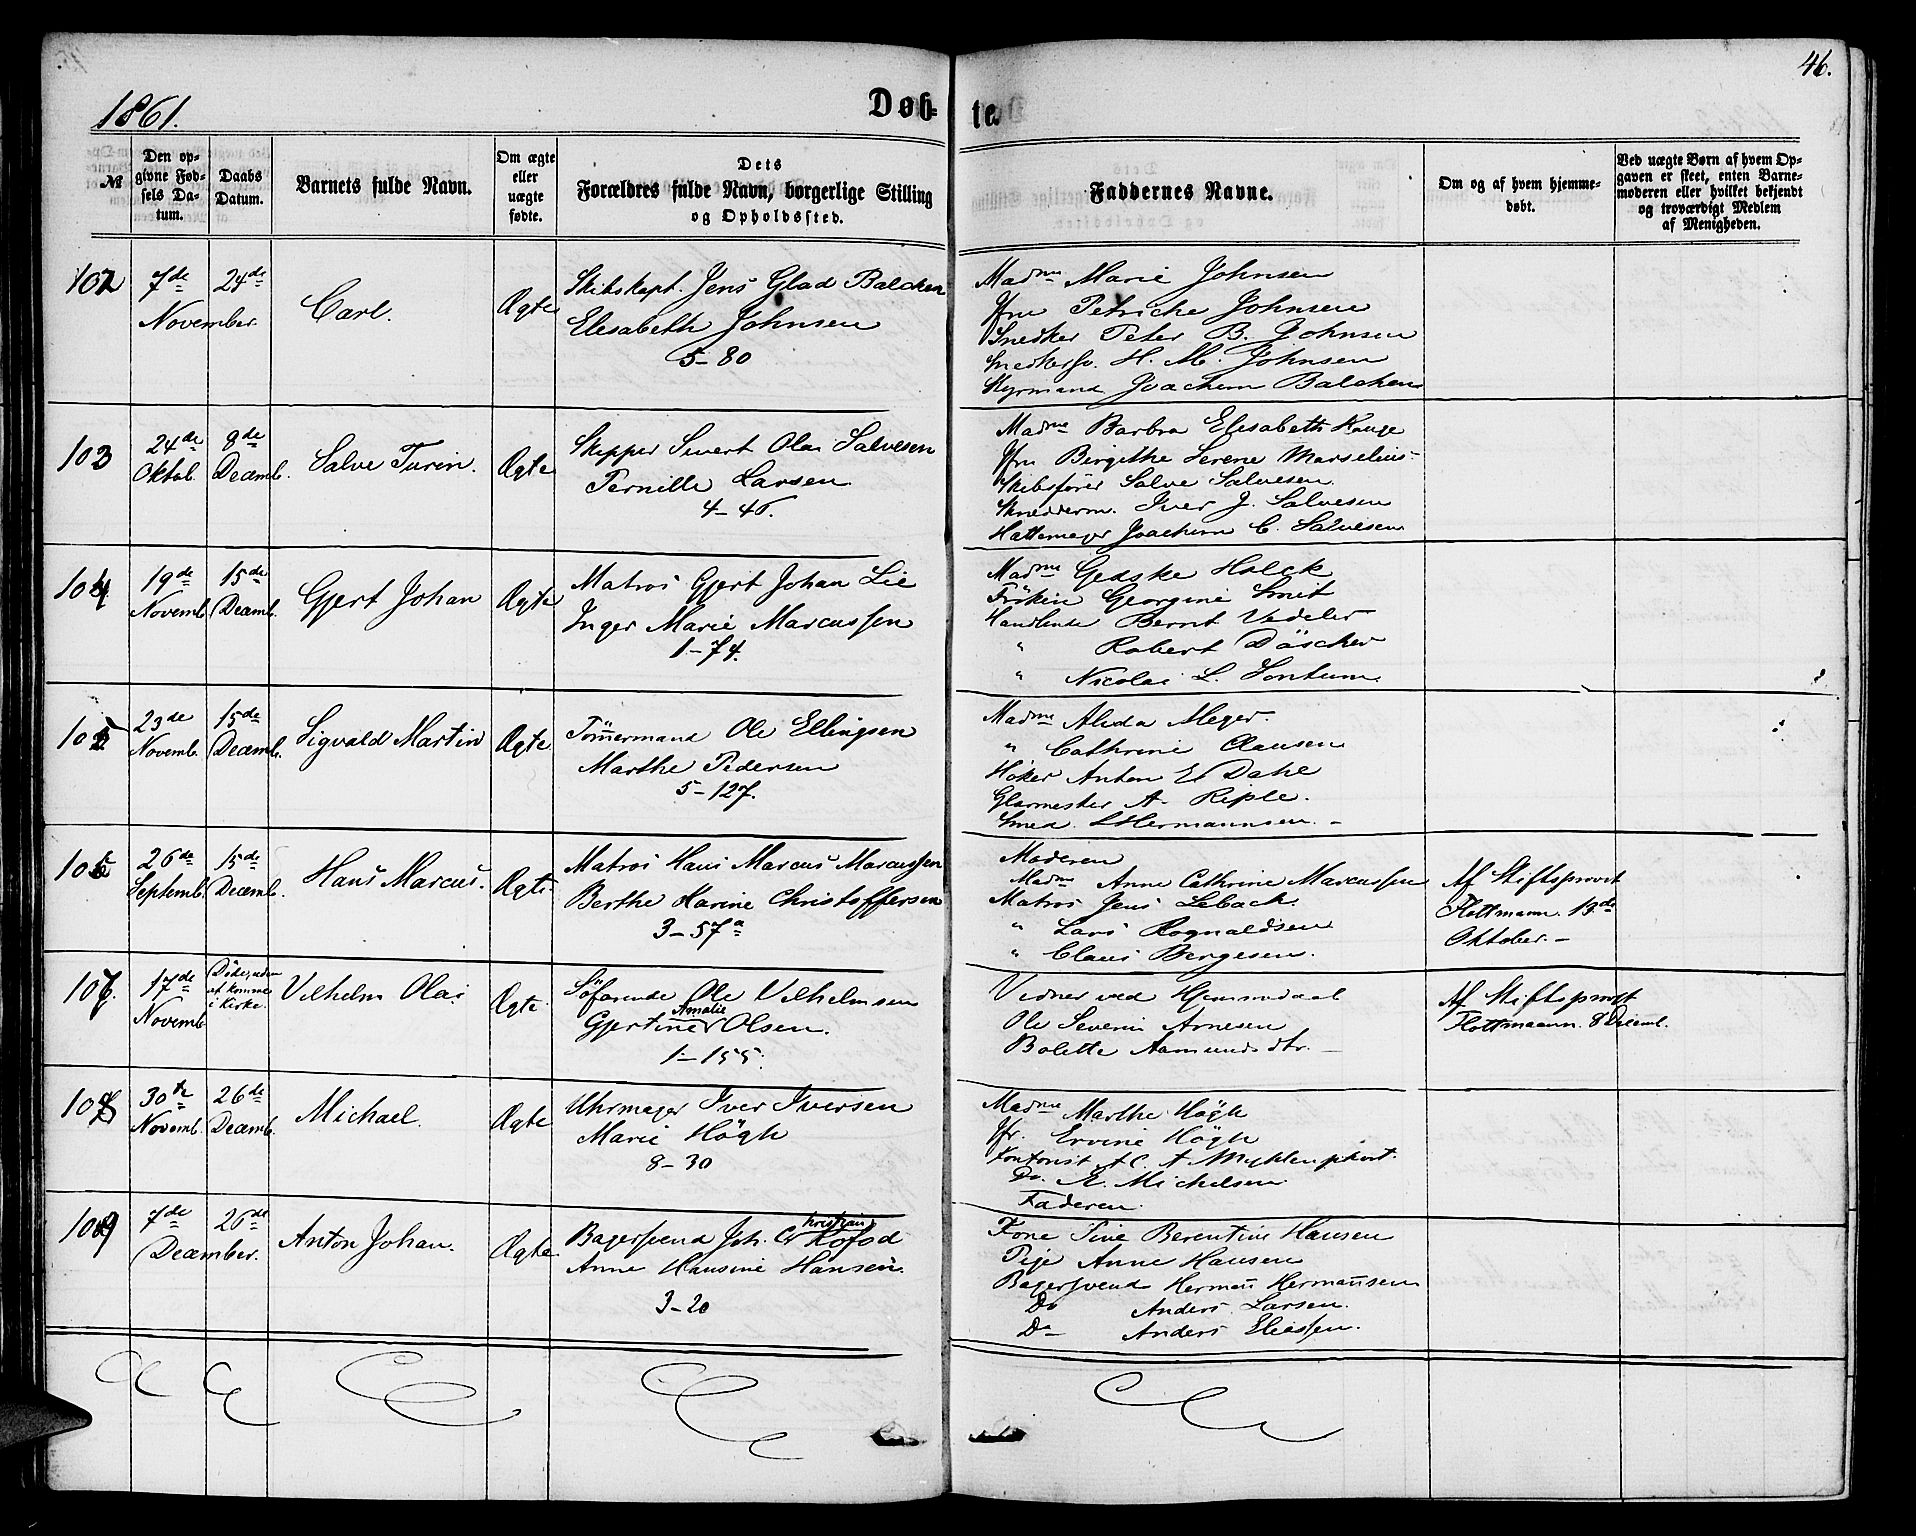 46.
1861.
Døb-
te.
№
Den op-
givne Fød-
sels Da-
tum.
Daabs
Datum.
Barnets fulde Navn.
Om ægte
eller
uægte
fødte.
Dets
Forældres fulde Navn, borgerlige Stilling
og Opholdssted.
Faddernes Navne.
Om og af hvem hjemme-
døbt.
Ved uægte Børn af hvem Op-
gaven er skeet, enten Barne-
moderen eller hvilket bekjendt
og troværdigt Medlem
af Menigheden.
102
7de 24de
November.
Carl.
Ægte
Skibskapt. Jens Glad Balchen
Elesabeth Johnsen
5-80
Madme Marie Johnsen
Jfru Petriche Johnsen
Snedker Peter B. Johnsen
Snedkersv. H. M. Johnsen
Styrmand Joachim Balchen
103
24de
Oktob.
8de
Decemb.
Salve Turin.
Ægte
Skipper Sivert Olai Salvesen
Pernille Larsen
4-46.
Madme Barbra Elisabeth Hauge
Jfru Bergithe Serene Marselius
Skibsfører Salve Salvesen
Iver J. Salvesen
Hattemager Joachim C. Salvesen
104
19de
Novemb.
15de
Decemb.
Gjert Johan
Ægte
Matros Gjert Johan Lie
Inger Marie Marcussen
1-74.
Madme Gedske Holck
Frøken Georgine Smit
Handlende Bernt Vedeler
" Robert Döscher
" Nicolai L. Sontum
105
23de
Novemb.
15de
Decemb.
Sigvald Martin
Ægte
Tömmermand Ole Ellingsen
Marthe Pedersen
5-127.
Madme Alida Meyer.
" Cathrine Clausen
Høker Anton E. Dahl
Glarmester A. Riple.
Smed. Hermannsen. -
106
26de
Septemb.
15de
Decemb.
Hans Marcus.
Ægte
Matros Hans Marcus Marcussen
Berthe Karine Christoffersen
3-57a
Moderen
Madme Anne Cathrine Marcussen
Matros Jens Leback.
" Lars Rognaldsen
" Claus Bergesen.
Af Stiftsprovst
Flottmann. 13de
Oktober. -
107.
17de
Novemb.
Døde, uden
at komme
i Kirke.
Vilhelm Olai
Ægte.
Söfarende Ole Vilhelmsen
Amalie
Gjertine Olsen.
1-155.
Vidner ved Hjemmedaab
Ole Severin Arnesen
Bolette Aamundsdtr. -
Af Stiftsprovst
Flottmann. 8 Decemb.
108
30te
Novemb.
26de
Decemb.
Michael.
Ægte
Uhrmager Iver Iversen
Marie Högh
8-30
Madme Marthe Högh
Jfr. Ervine Högh
Kontorist
Do. E. Michelsen
Faderen.
109
7de 26de
December.
Anton Johan.
Ægte
Bagersvend Joh. Christian Kofod
Anne Hansine Hansen.
3-20
Kone Sine Berentine Hansen
Pige Anne Hansen
Bagersvend Herman̄ Herman̄sen
Do Anders Larsen.
Do Anders Eliassen.